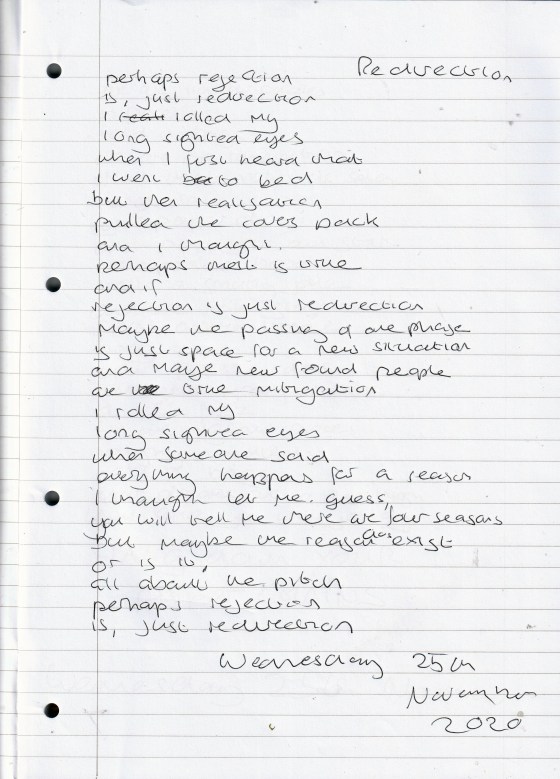 Redirection
perhaps rejection
is, just redirection
I rolled my
long sighted eyes
when I first heard that
I went to bed
but then realisation
pulled the covers back
and I thought.
perhaps that is true
and if
rejection is just redirection
Maybe the passing of one phase
is just space for a new situation
and maybe new found people
are true mitigation
I rolled my
long sighted eyes
when someone said
everything happens for a reason
I thought let me guess,
you will tell me there are four seasons
but maybe the reason does exist
or is it,
all about the pitch
perhaps rejection
is, just redirection
Wednesday 25th
November
2020